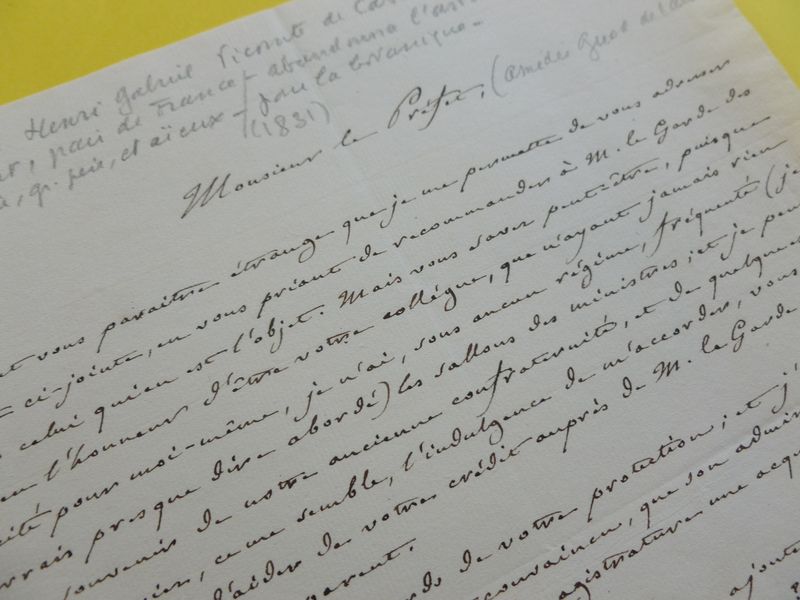 Henri Gabriel Vicomte de
pair de France - abandonna
gr. père, et aïeux - pour la botanique -
(1831)
Monsieur le Préfet, (Amédée
vous paraître étrange que je me permette de vous adresser
ci-jointe, en vous priant de recommander à M. le Garde des
celui qui en est l'objet. Mais vous savez peut-être, puisque
l'honneur d'être votre collégue, que n'ayant jamais rien
pour moi-même, je n'ai, sous aucun régime, fréquenté (je
presque dire abordé) les sallons des ministres; et je
souvenir de notre ancienne confraternité, et de quelques
ce me semble, l'indulgence de m'accorder, vous
d'aider de votre crédit auprès de M. le Garde
de votre protection; et j'
convaincu, que son
magistrature une
ajoute